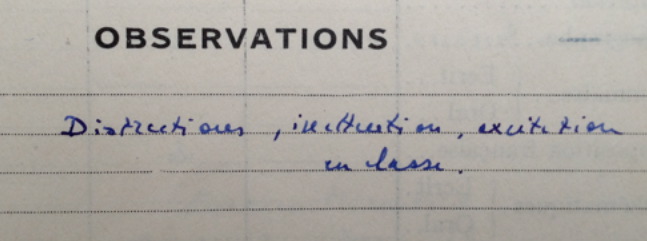 OBSERVATIONS
Distractions, inattention, excitation
en classe.